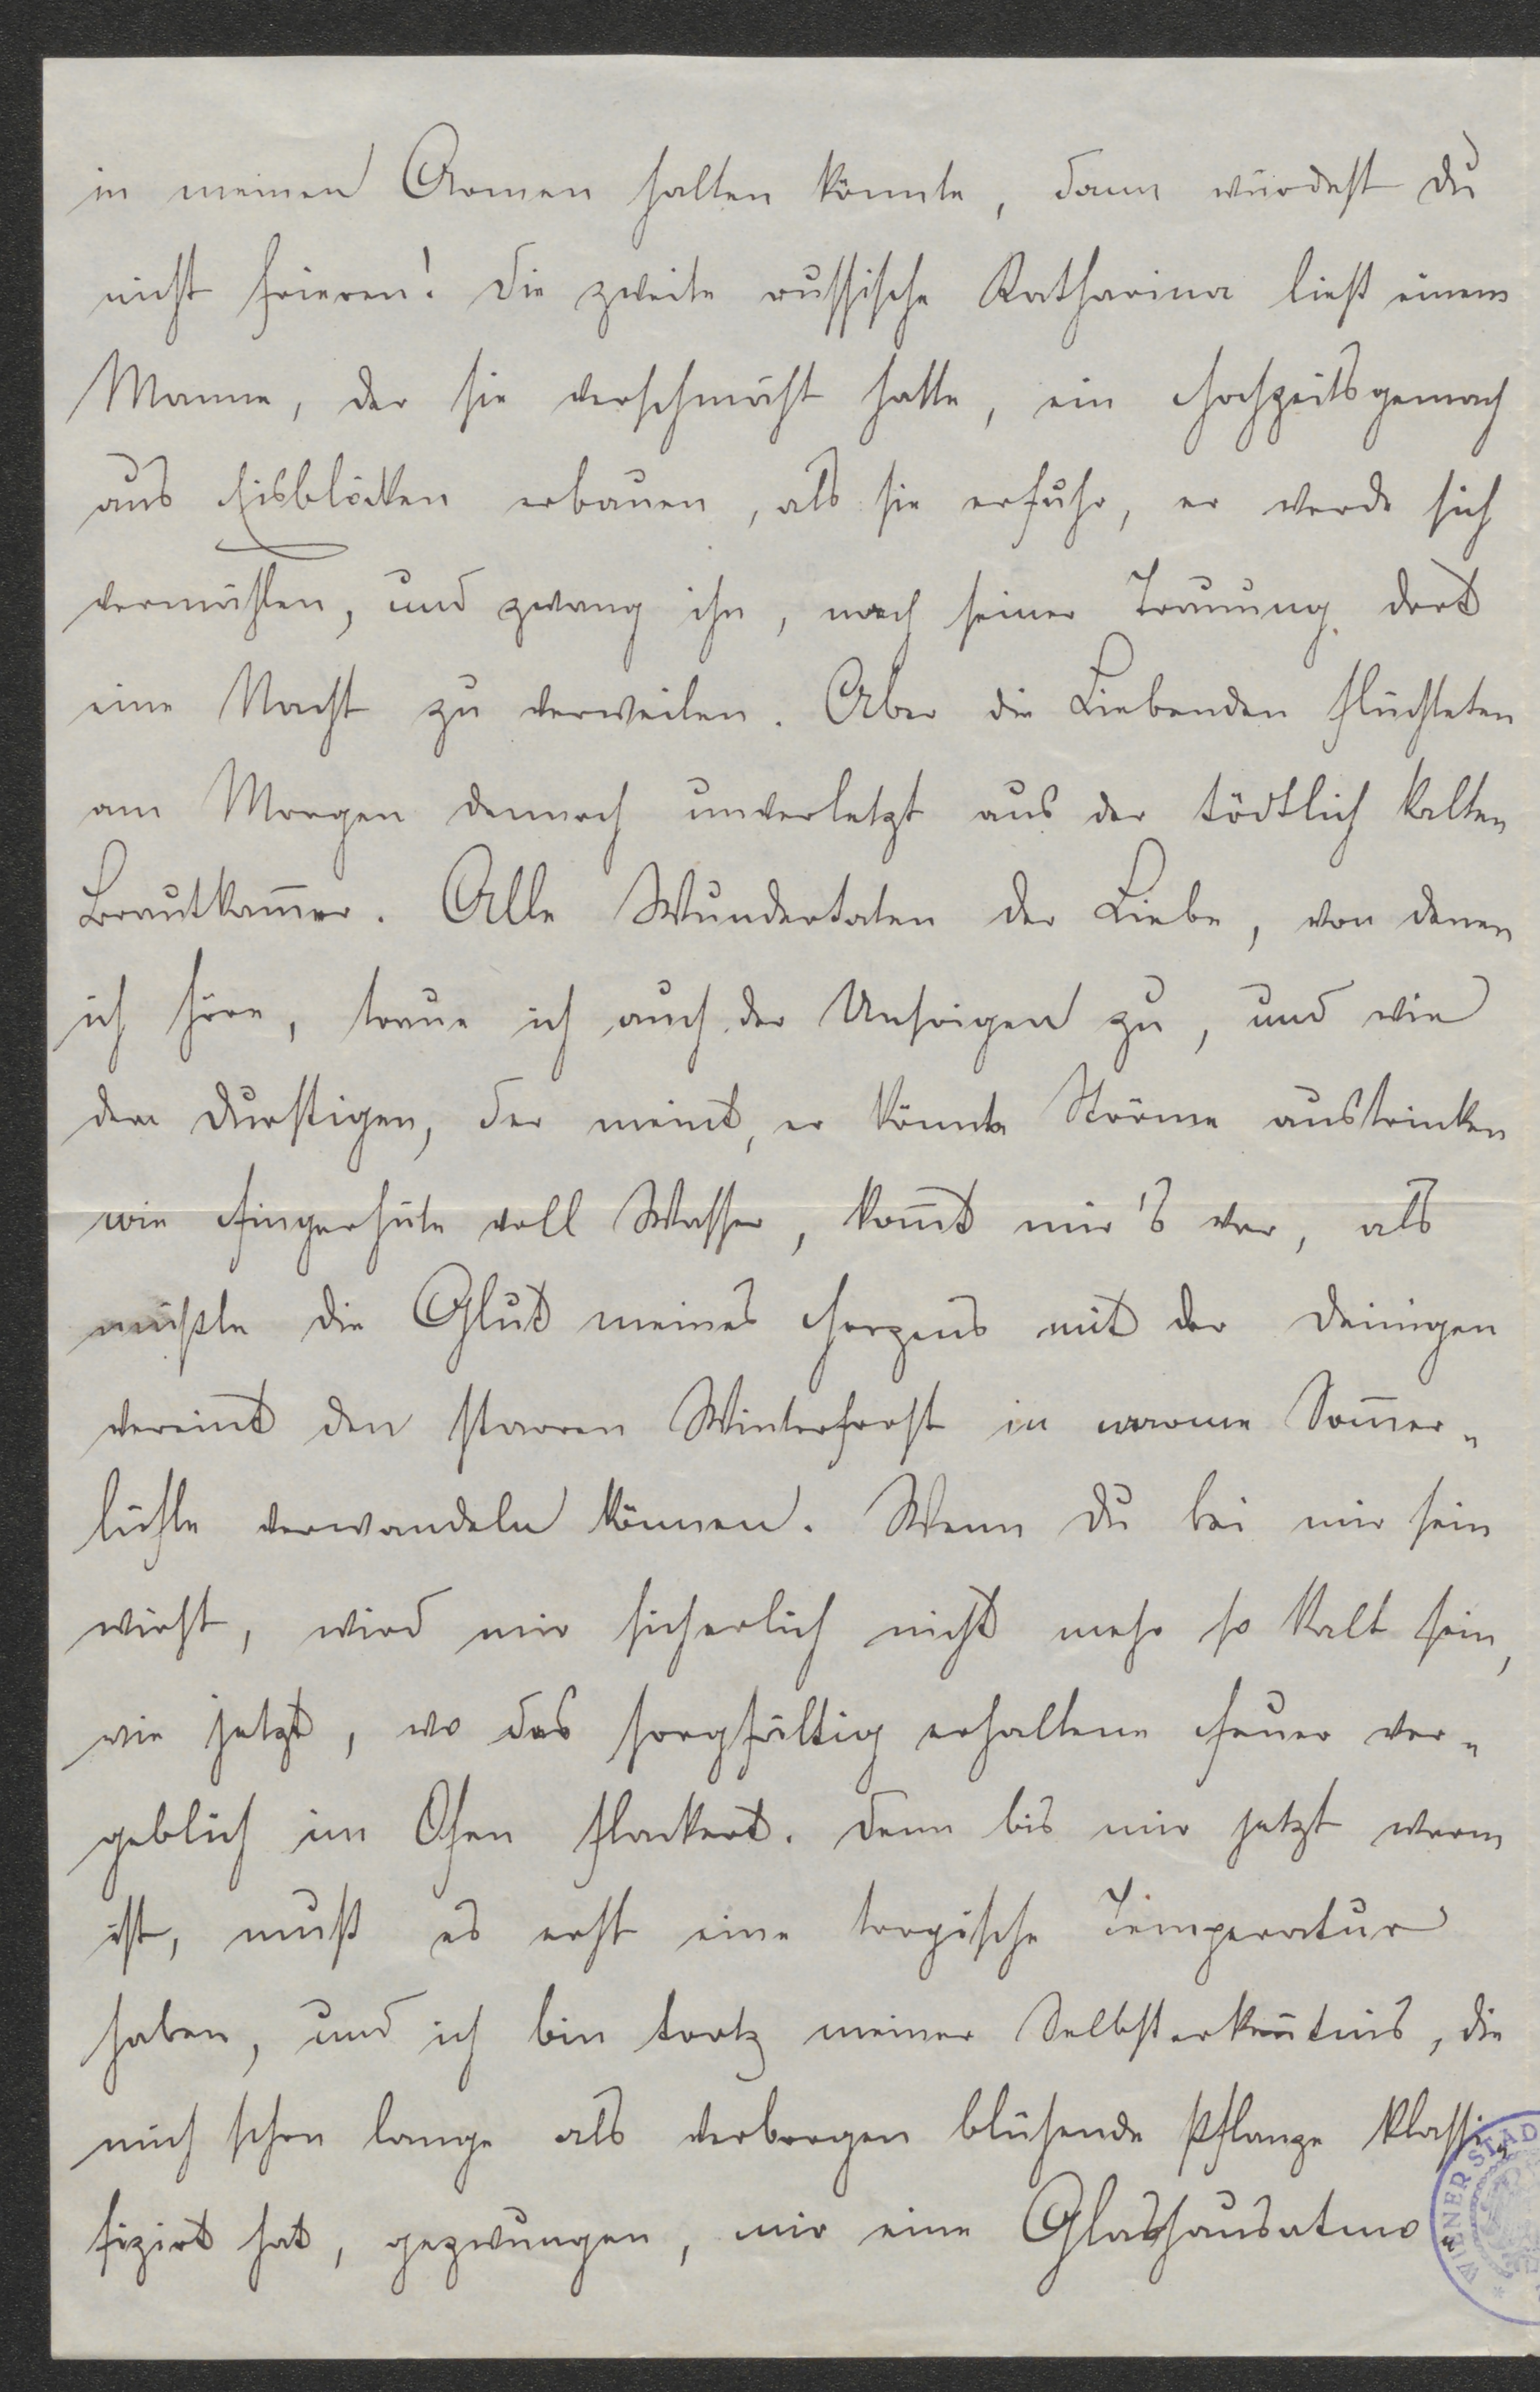 in meinen Armen halten könnte, dann würdest Du
nicht frieren! Die zweite russische Katharina ließ einem
Manne, der sie verschmäht hatte, ein Hochzeitsgemach
aus Eisblöcken erbauen, als sie erfuhr, er werde sich
vermählen, und zwang ihn, nach seiner Trauung dort
eine Nacht zu verweilen. Aber die Liebenden flüchteten
am Morgen dennoch unverletzt aus der tödtlich kalten
Brautkam̅er. Alle Wundertaten der Liebe, von denen
ich höre, traue ich auch der Unsrigen zu, und wie
dem Durstigen, der meint, er könnte Ströme austrinken
wie Fingerhüte voll Wasser, kom̅t mir's vor, als
müßte die Glut meines Herzens mit der Deinigen
vereint den starren Winterfrost in warme Som̅er„
lüfte verwandeln können. Wenn Du bei mir sein
wirst, wird mir sicherlich nicht mehr so kalt sein,
wie jetzt, wo das sorgfältig erhaltene Feuer ver„
geblich im Ofen flackert. Denn bis mir jetzt warm
ist, muß es erst eine tropische Temperatur
haben, und ich bin trotz meiner Selbsterken̅tnis, die
mich schon lange als verborgen blühende Pflanze klassi„
fizirt hat, gezwungen, mir eine Glashausatmo„
WIENER STAD